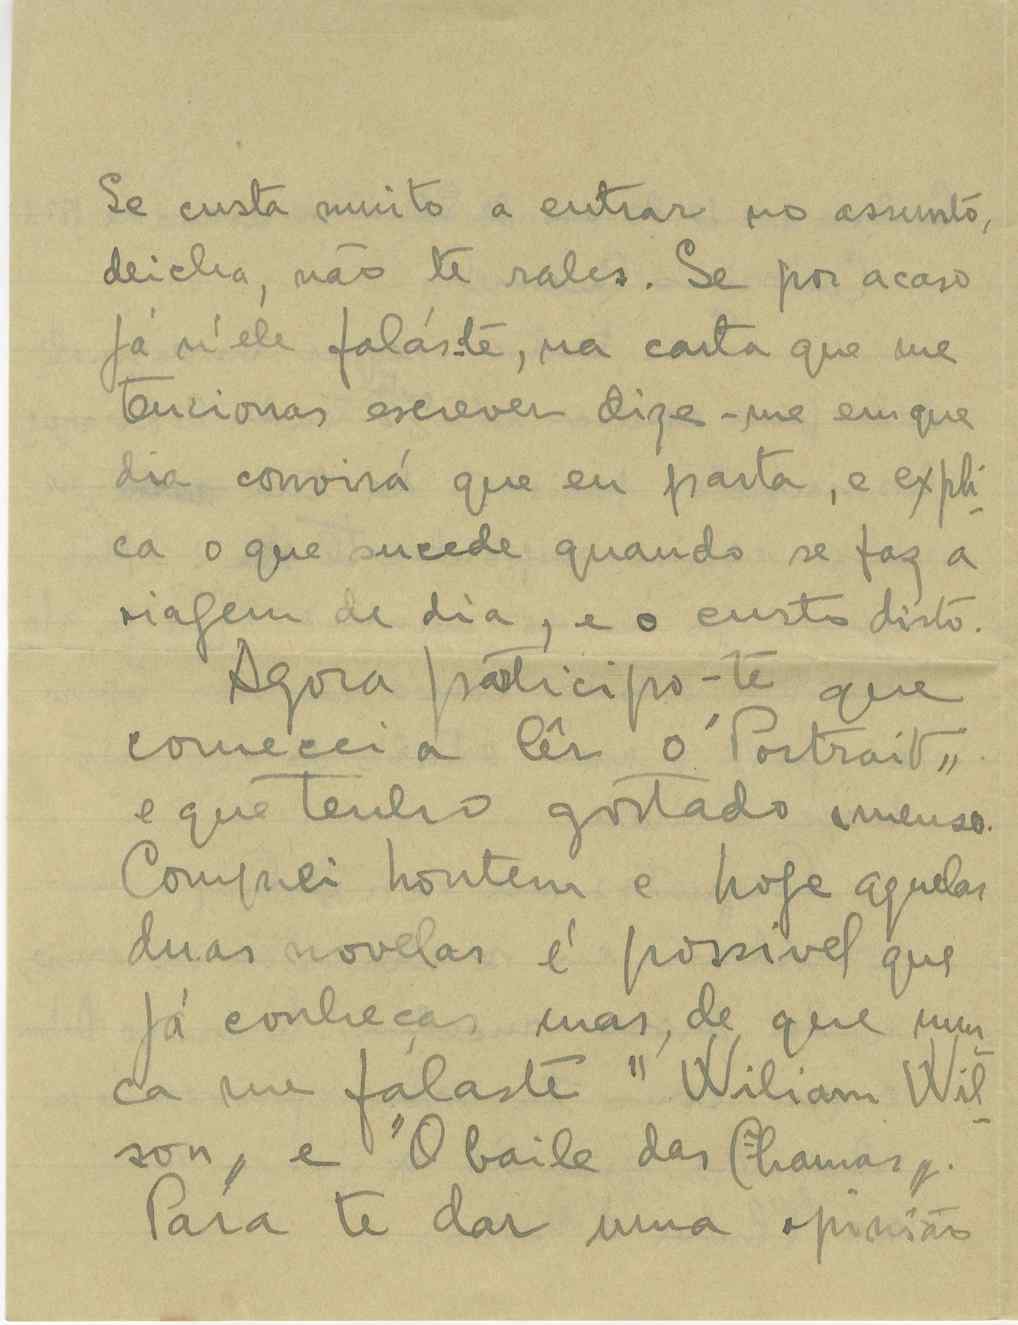 Se custa muito a entrar no assunto,
deicha, não te rales. Se por acaso
já n'ele faláste, na carta que me
tencionas escrever dize-me em que
dia convirá que eu parta, e expli-
ca o que sucede quando se faz a
viagem de dia, e o custo disto.
Agora participo-te que
comecei a lêr o "Portrait"
e que tenho gostado imenso.
Comprei hontem e hoje aquelas
duas novelas é possivel que
já conheças mas, de que nun-
ca me falaste "Wiliam Wil-
son" e "O baile das Chamas".
Para te dar uma opinião